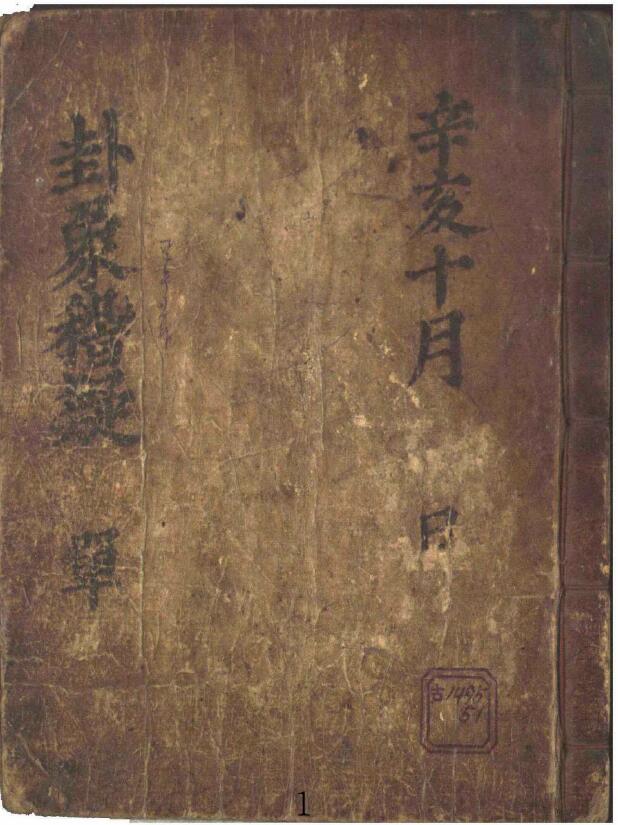 辛亥十月 日
卦聚禮疑 單
古1495
51
1